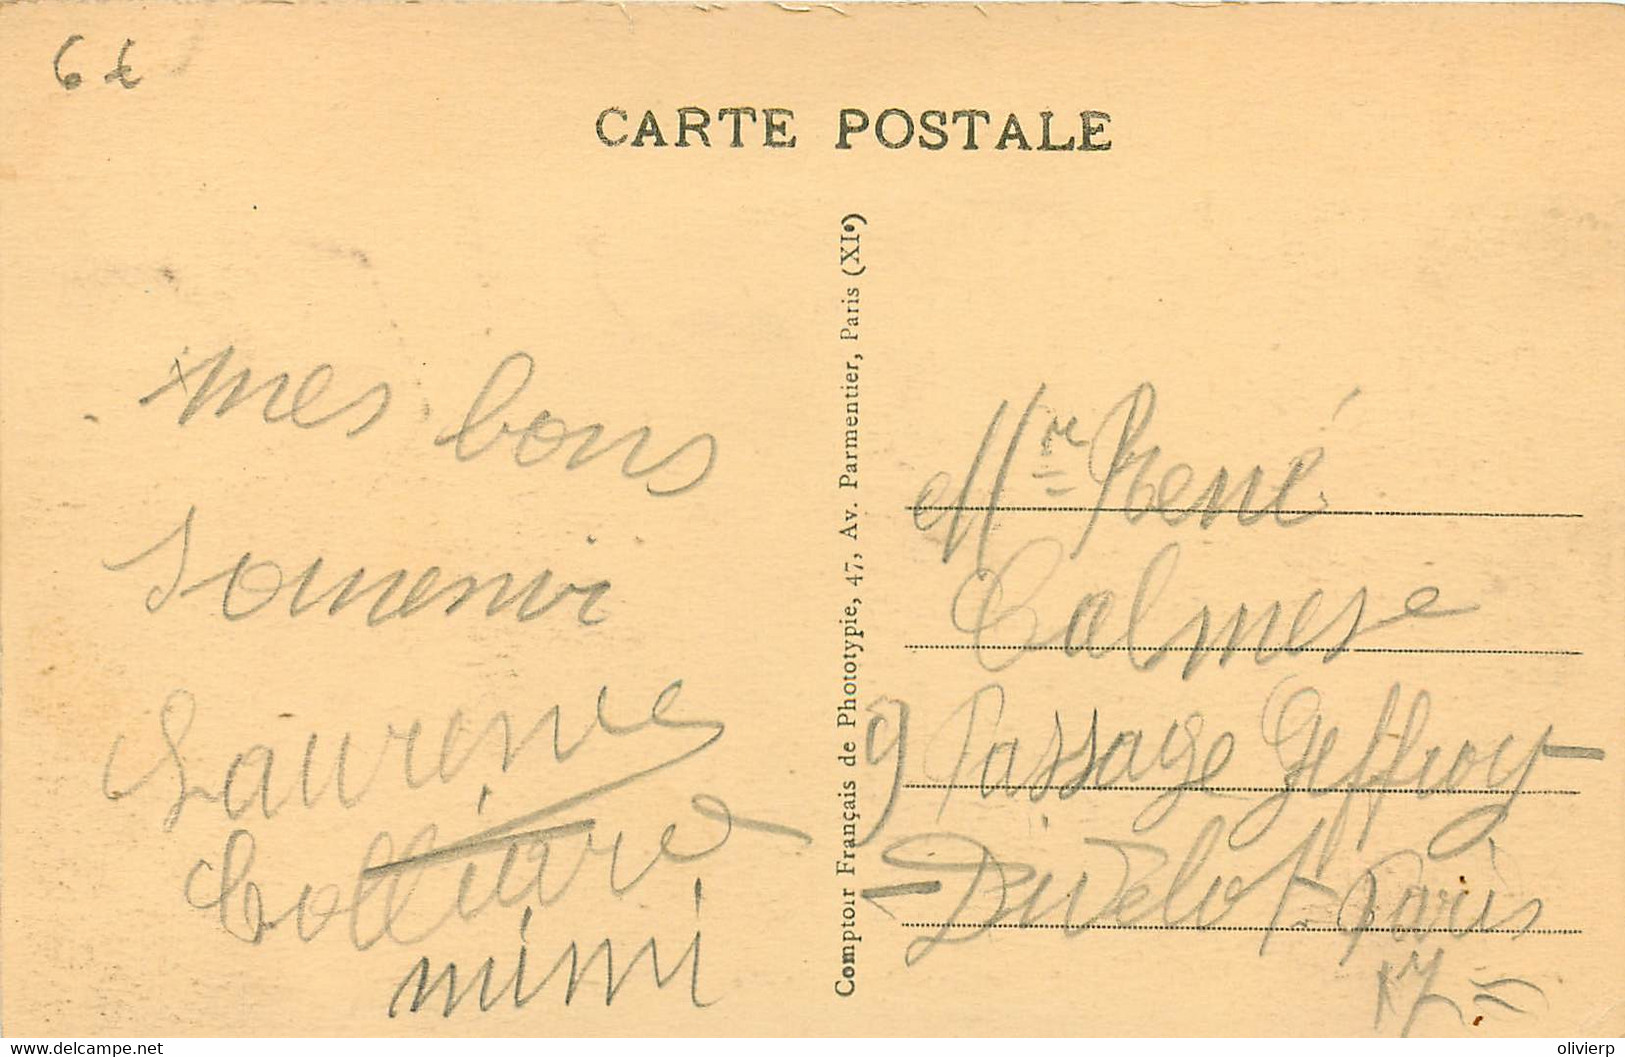 6 €
CARTE POSTALE
mes bons
souvenir
Laurence
mimi
Comptoir Français de Phototypie, 47, Av. Parmentier, Paris (XIe)
Mr René
Calmese
9 Passage Geffroy
Didelot Paris
17 =
olivierp